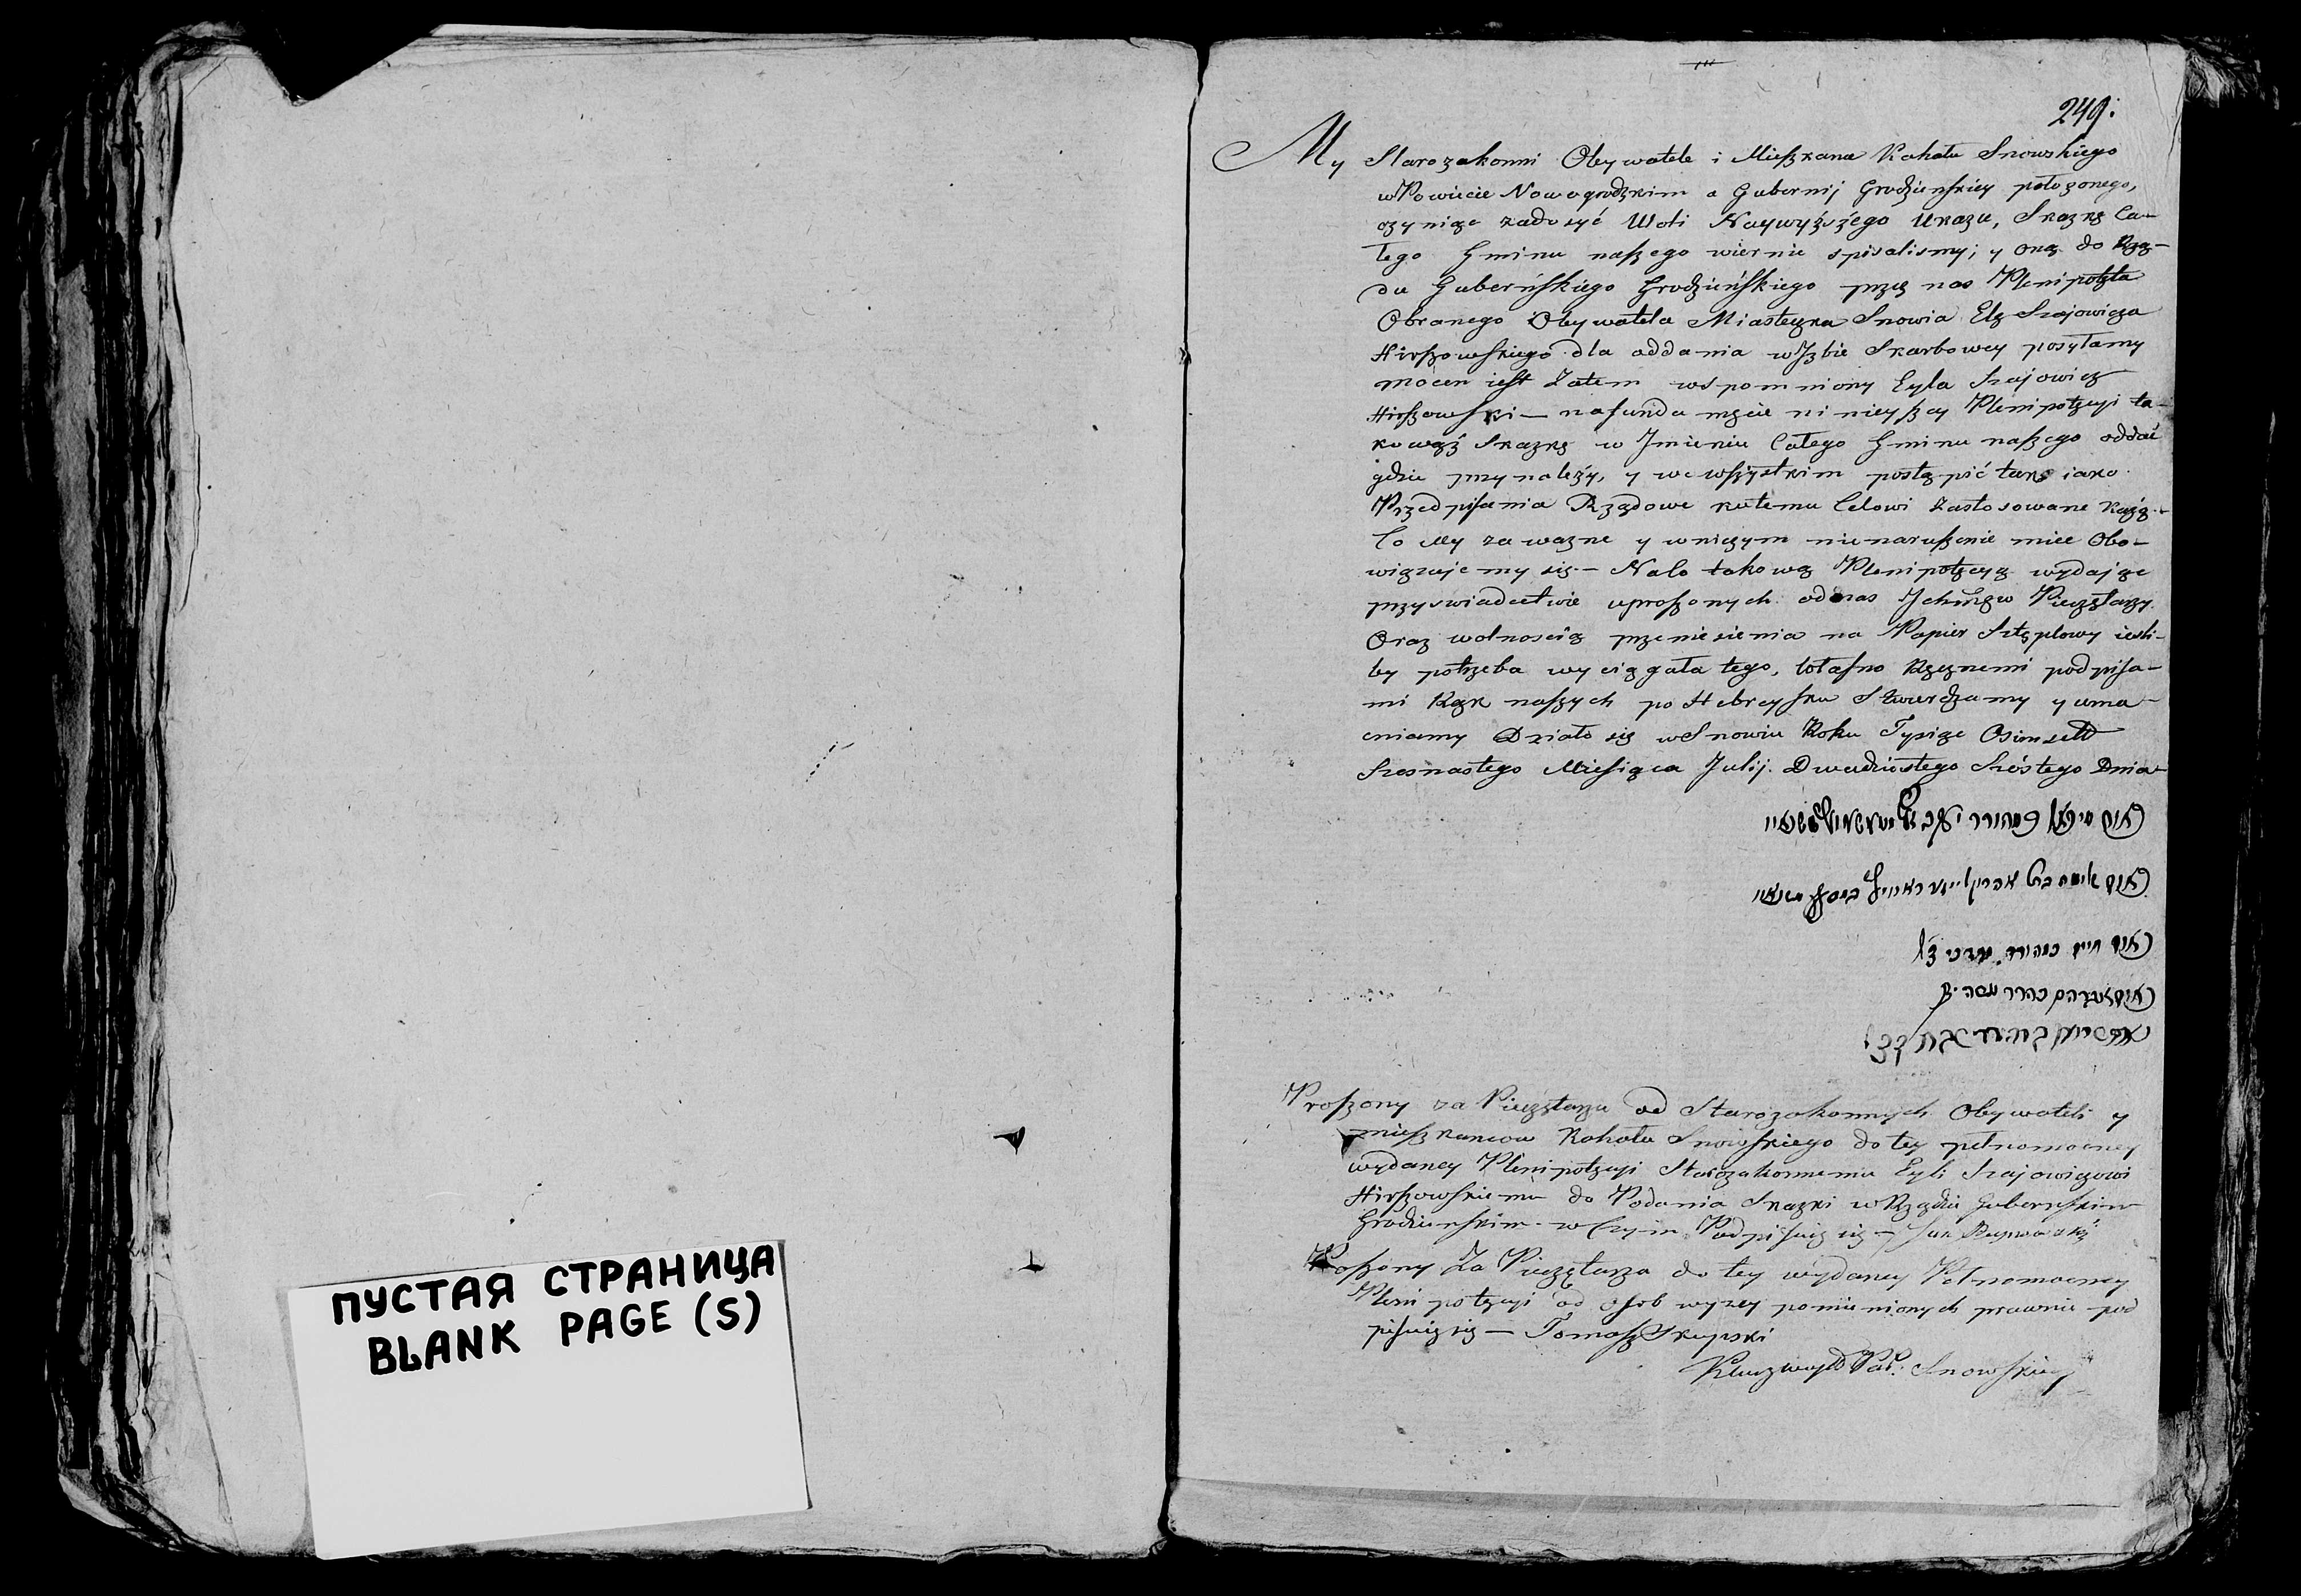 ПУСТАЯ СТРАНИЦА
BLANK PAGE (S)
249.
My Starozakonni Obywatele i Mieszkance Kahału Snowskiego
w Powiecie Nowogrodzkim a Gubernij Grodzieńskiey położonego,
czyniąc zadosyć Woli Naywyższego Ukazu, Skazkę ca-
łego Gminu naszego wiernie spisalismy; y oną do Rzą-
du Guberńskiego Grodzieńskiego przez nas Plenipotęta
Obranego Obywatela Miasteczka Snowia Elę Szajowicza
Hirszowskiego dla oddania w Jzbie Skarbowey posyłamy
mocen iest Zatem wspomniony Eyla Szajowicz
Hirszowski — na fundamęcie ninieyszey Plenipotęcyi ta-
kowąż Skazkę w Jmieniu Całego Gminu naszego oddać
gdzie przynależy, y we wszystkim postąpić tak iako
Przedpisania Rządowe ku temu Celowi zastosowane każą.
Co My za wazne y wniczym nienaruszenie mieć Obo-
wiązujemy się. — Na co takową Plenipotęcyą wydając
przy swiadectwie uproszonych od nas Pieczętarzy
Oraz wolnością przeniesienia na Papier Sztęplowy iesli-
by potrzeba wyciągała tego, własno Ręcznemi podpisa-
mi Rąk naszych po Hebreysku Stwierdzamy y uma-
cniamy Działo się w Snowiu Roku Tysiąc Osimset
Szesnastego Miesiąca Julij. Dwudziestego Szóstego Dnia
נאום
נאום
נאום חיים במהורר מרדכי ז״ל
נאום אברהם במהרר משה
Proszony za Pieczętarza od Starozakonnych Obywateli y
mieszkancow Kahału Snowskiego do tey pełnomocney
wydaney Plenipotęcyi Starozakonnemu Eyli Szajowiczowi
Hirszowskiemu do Podania Skazki w Rządzie Gubernskim
Grodzienskim — w Czym Podpisuię się — Jan
Proszony Za Pieczętarza do tey wydaney Pełnomocney
Plenipotęcyi od osob wyzey pomienionych prawnie pod
pisuię się — Tomasz Skupski
Snowskiey